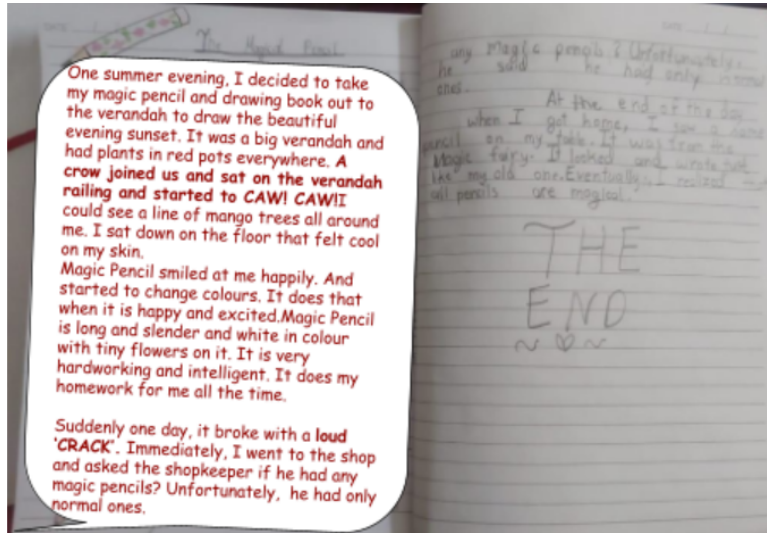 The Magical Pencil
One summer evening, I decided to take
my magic pencil and drawing book out to
the verandah to draw the beautiful
evening sunset. It was a big verandah and
had plants in red pots everywhere. A
crow joined us and sat on the verandah
railing and started to CAW! CAW!I
could see a line of mango trees all around
me. I sat down on the floor that felt cool
on my skin.
Magic Pencil smiled at me happily. And
started to change colours. It does that
when it is happy and excited.Magic Pencil
is long and slender and white in colour
with tiny flowers on it. It is very
hardworking and intelligent. It does my
homework for me all the time.
Suddenly one day, it broke with a loud
'CRACK'. Immediately, I went to the shop
and asked the shopkeeper if he had any
magic pencils? Unfortunately, he had only
normal ones.
any Magic pencils? Unfortunately,
he said he had only normal
ones.
At the end of the day
when I got home, I saw a
pencil on my table. It was from the
Magic fairy. It looked and wrote just
like my old one.Eventually, I realized
all pencils are magical.
THE
END